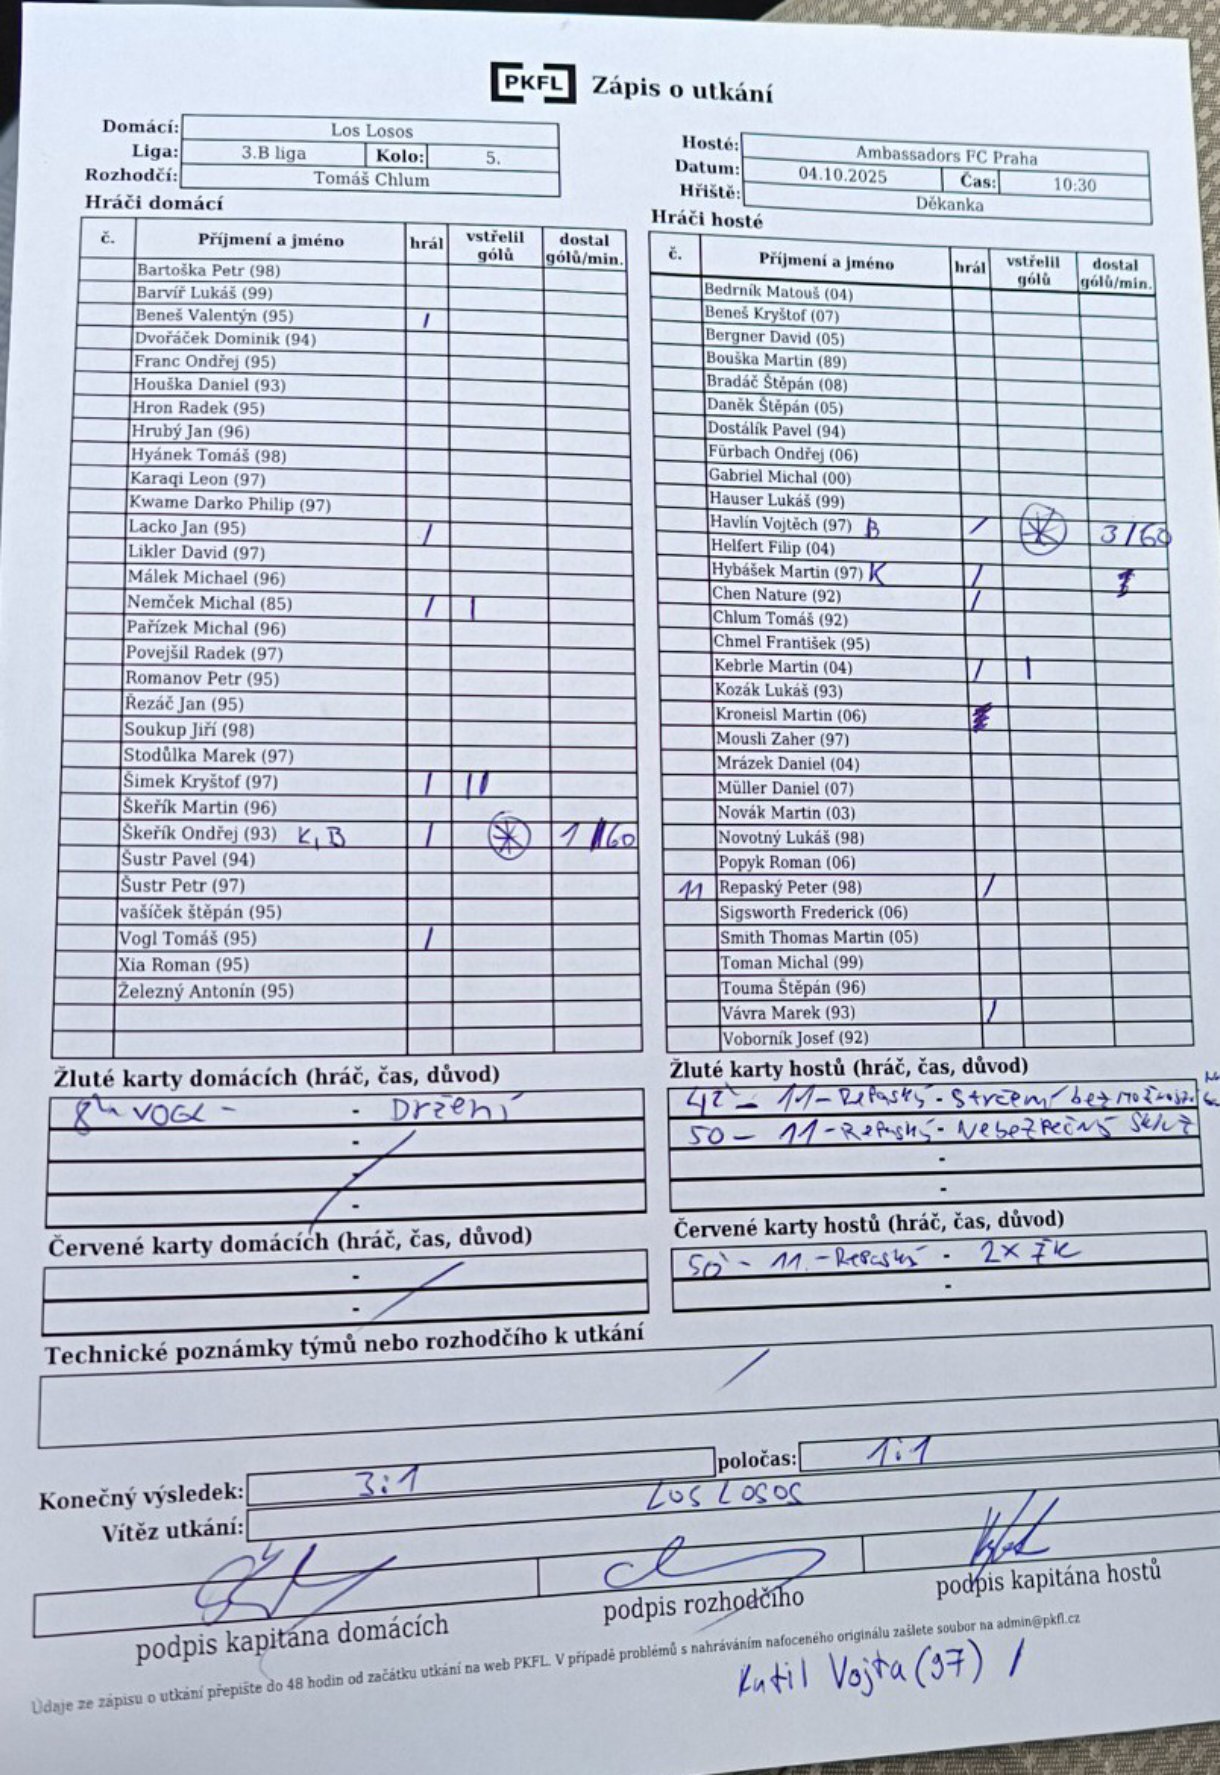 PKFL Zápis o utkání
Domácí: Los Losos
Liga: 3.B liga Kolo: 5.
Rozhodčí: Tomáš Chlum
Hosté: Ambassadors FC Praha
Datum: 04.10.2025 Čas: 10:30
Hřiště: Děkanka
Hráči domácí
č. Příjmení a jméno hrál vstřelil gólů dostal gólů/min.
Bartoška Petr (98)
Barvíř Lukáš (99)
Beneš Valentýn (95) /
Dvořáček Dominik (94)
Franc Ondřej (95)
Houška Daniel (93)
Hron Radek (95)
Hrubý Jan (96)
Hyánek Tomáš (98)
Karaqi Leon (97)
Kwame Darko Philip (97)
Lacko Jan (95) /
Likler David (97)
Málek Michael (96)
Nemček Michal (85) / |
Pařízek Michal (96)
Povejšil Radek (97)
Romanov Petr (95)
Řezáč Jan (95)
Soukup Jiří (98)
Stodůlka Marek (97)
Šimek Kryštof (97) / ||
Škeřík Martin (96)
Škeřík Ondřej (93) K, B / 1 /60
Šustr Pavel (94)
Šustr Petr (97)
vašíček štěpán (95)
Vogl Tomáš (95) /
Xia Roman (95)
Železný Antonín (95)
Hráči hosté
č. Příjmení a jméno hrál vstřelil gólů dostal gólů/min.
Bedrník Matouš (04)
Beneš Kryštof (07)
Bergner David (05)
Bouška Martin (89)
Bradáč Štěpán (08)
Daněk Štěpán (05)
Dostálík Pavel (94)
Fürbach Ondřej (06)
Gabriel Michal (00)
Hauser Lukáš (99)
Havlín Vojtěch (97) B / 3/60
Helfert Filip (04)
Hybášek Martin (97) K /
Chen Nature (92) /
Chlum Tomáš (92)
Chmel František (95)
Kebrle Martin (04) / |
Kozák Lukáš (93)
Kroneisl Martin (06)
Mousli Zaher (97)
Mrázek Daniel (04)
Müller Daniel (07)
Novák Martin (03)
Novotný Lukáš (98)
Popyk Roman (06)
11 Repaský Peter (98) /
Sigsworth Frederick (06)
Smith Thomas Martin (05)
Toman Michal (99)
Touma Štěpán (96)
Vávra Marek (93) /
Voborník Josef (92)
Žluté karty domácích (hráč, čas, důvod)
VOGL - - Držení
-
-
-
Červené karty domácích (hráč, čas, důvod)
-
-
Žluté karty hostů (hráč, čas, důvod)
42 - 11 - Repaský - Strčení bez
50 - 11 - Repaský - Nebezpečný skluz
-
-
Červené karty hostů (hráč, čas, důvod)
50 - 11. - Repaský - 2x ŽK
-
Technické poznámky týmů nebo rozhodčího k utkání
Konečný výsledek: 3:1 poločas: 1:1
Vítěz utkání: LOS LOSOS
podpis kapitána domácích podpis rozhodčího podpis kapitána hostů
Údaje ze zápisu o utkání přepište do 48 hodin od začátku utkání na web PKFL. V případě problémů s nahráváním nafoceného originálu zašlete soubor na admin@pkfl.cz
Kutil Vojta (97) /